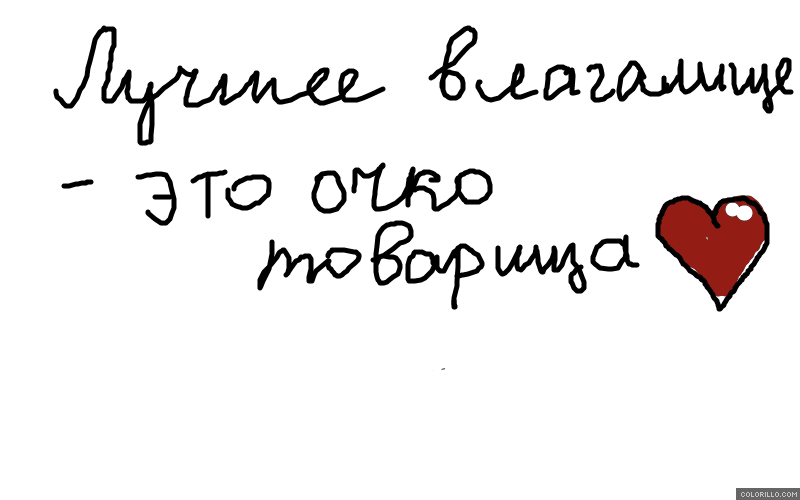 Лучшее влагалище
- это очко
товарища
COLORILLO.COM